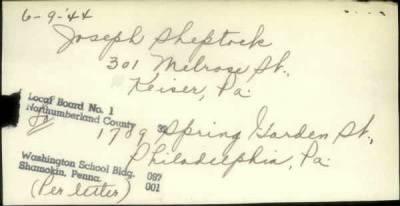 6-9-'44
Joseph Sheptock
301 Melrose St.,
Keiser, Pa.
Local Board No. 1
Northumberland County 39
1789 Spring Garden St.,
Philadelphia, Pa.
Washington School Bldg. 087
Shamokin, Penna. 001
(Per letter)